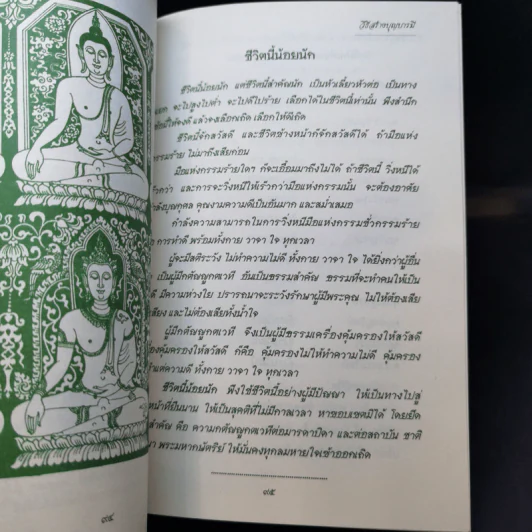 วิธีสร้างบุญบารมี
ชีวิตนี้น้อยนัก
ชีวิตนี้น้อยนัก แต่ชีวิตนี้สำคัญนัก เป็นหัวเลี้ยวหัวต่อ เป็นทาง
แยก จะไปสูงไปต่ำ จะไปดีไปร้าย เลือกได้ในชีวิตนี้เท่านั้น พึงสำนึก
นี้ให้จงดี แล้วจงเลือกเถิด เลือกให้ดีเถิด
ชีวิตนี้จักสวัสดี และชีวิตข้างหน้าก็จักสวัสดีได้ ถ้ามือแห่ง
กรรมร้าย ไม่มาถึงเสียก่อน
มือแห่งกรรมร้ายใดๆ ก็จะเอื้อมมาถึงไม่ได้ ถ้าชีวิตนี้ วิ่งหนีได้
เร็วกว่า และการจะวิ่งหนีให้เร็วกว่ามือแห่งกรรมนั้น จะต้องอาศัย
กำลังบุญกุศล คุณงามความดีเป็นอันมาก และสม่ำเสมอ
กำลังความสามารถในการวิ่งหนีมือแห่งกรรมชั่วกรรมร้าย
คือ การทำดี พร้อมทั้งกาย วาจา ใจ ทุกเวลา
ผู้จะมีสติระวัง ไม่ทำความไม่ดี ทั้งกาย วาจา ใจ ได้ยิ่งกว่าผู้อื่น
เป็นผู้มีกตัญญูกตเวที อันเป็นธรรมสำคัญ ธรรมที่จะทำคนให้เป็น
มีความห่วงใย ปรารถนาจะระวังรักษาผู้มีพระคุณ ไม่ให้ต้องเสีย
เสียง และไม่ต้องเสียทั้งน้ำใจ
ผู้มีกตัญญูกตเวที จึงเป็นผู้มีธรรมเครื่องคุ้มครองให้สวัสดี
คุ้มครองให้สวัสดี ก็คือ คุ้มครองไม่ให้ทำความไม่ดี คุ้มครอง
ทำแต่ความดี ทั้งกาย วาจา ใจ ทุกเวลา
ชีวิตนี้น้อยนัก พึงใช้ชีวิตนี้อย่างผู้มีปัญญา ให้เป็นทางไปสู่
หน้าที่ยืนนาน ให้เป็นสุคติที่ไม่มีกาลเวลา หาขอบเขตมิได้ โดยยึด
สำคัญ คือ ความกตัญญูกตเวทีต่อมารดาบิดา และต่อสถาบัน ชาติ
า พระมหากษัตริย์ ให้มั่นคงทุกลมหายใจเข้าออกเถิด
๙๔
๙๕